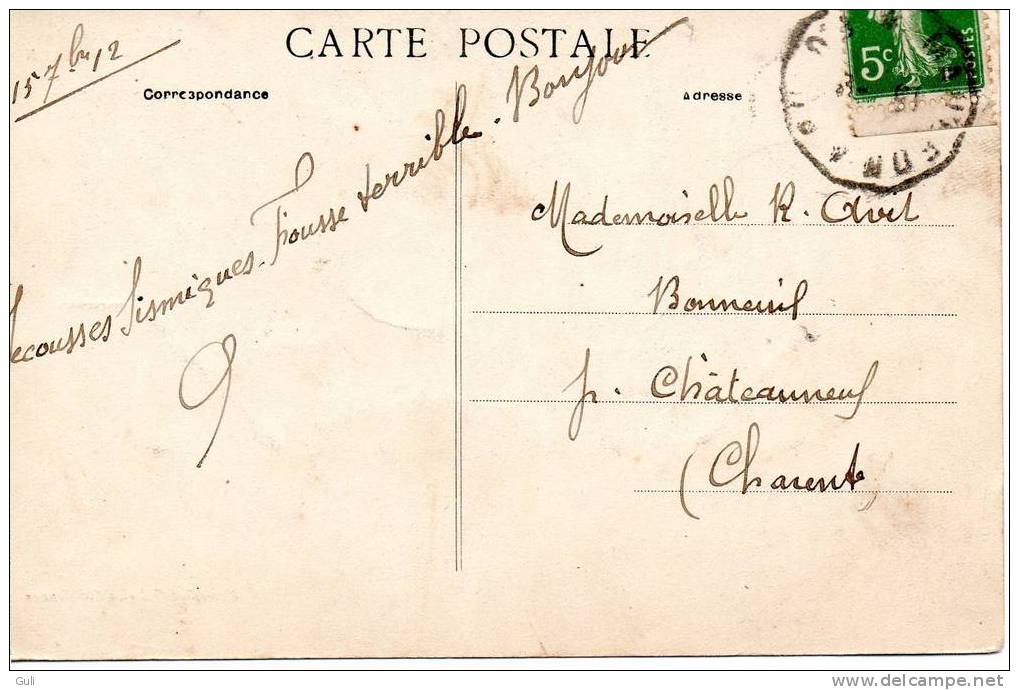 15 7bre 12
CARTE POSTALE
Correspondance
Adresse
5c
POSTES
Secousses Sismiques. Frousse terrible. Bonjour
Mademoiselle R. Avril
Bonneuil
p. Châteauneuf
(Charente)
Guli
delcampe.net